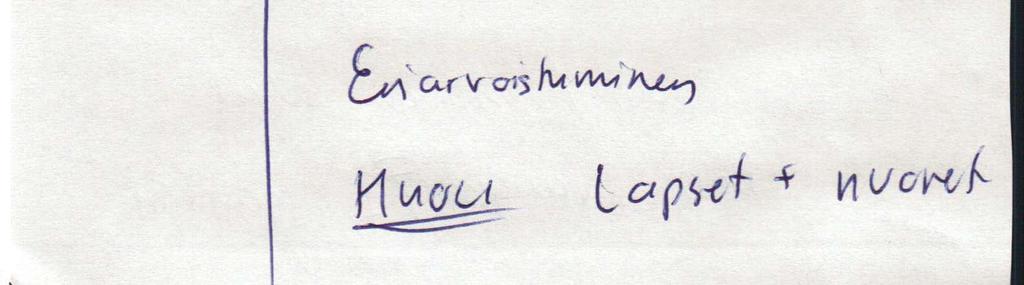 Eriarvoistuminen
Huoli Lapset + nuoret